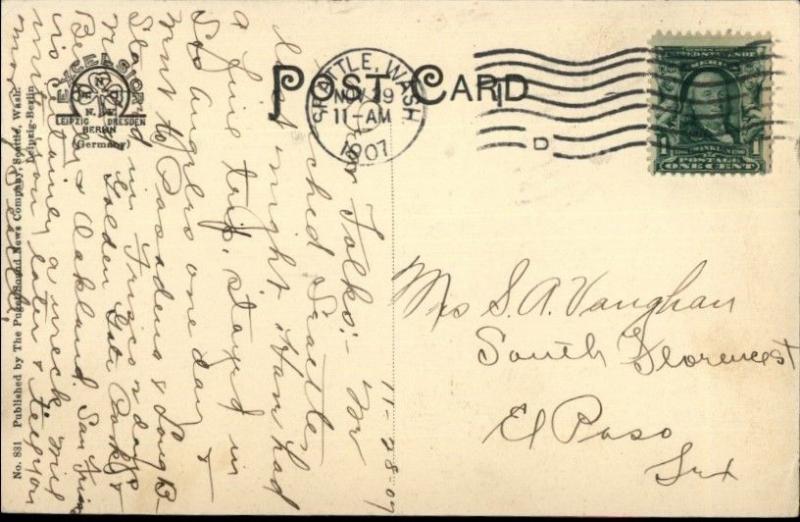 POST CARD
SEATTLE, WASH.
NOV 29
11-AM
1907
D
POSTAGE
ONE CENT
EXCELSIOR
LEIPZIG DRESDEN
BERLIN
(Germany)
No. 831 Published by The Puget Sound News Company, Seattle, Wash.
Leipzig-Berlin
11-28-07
Dear Folks:- We
reached Seattle
last night. Have had
a fine trip, stayed in
Los Angeles one day &
went to Pasadena & Long B-
Stayed in Frisco 2 days
Golden Gate Park &
& Oakland. San Fran
is certainly a wreck. Will
write you later & tell you
more
Mrs S. A. Vaughan
South Florence st
El Paso
Tex